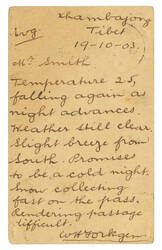 Khambajong
Tibet
19-10-03.
Mr Smith.
Temperature 25,
falling again as
night advances
Weather still clear.
Slight breeze from
South. Promises
to be a cold night.
Snow collecting
fast on the pass.
Rendering passage
difficult.